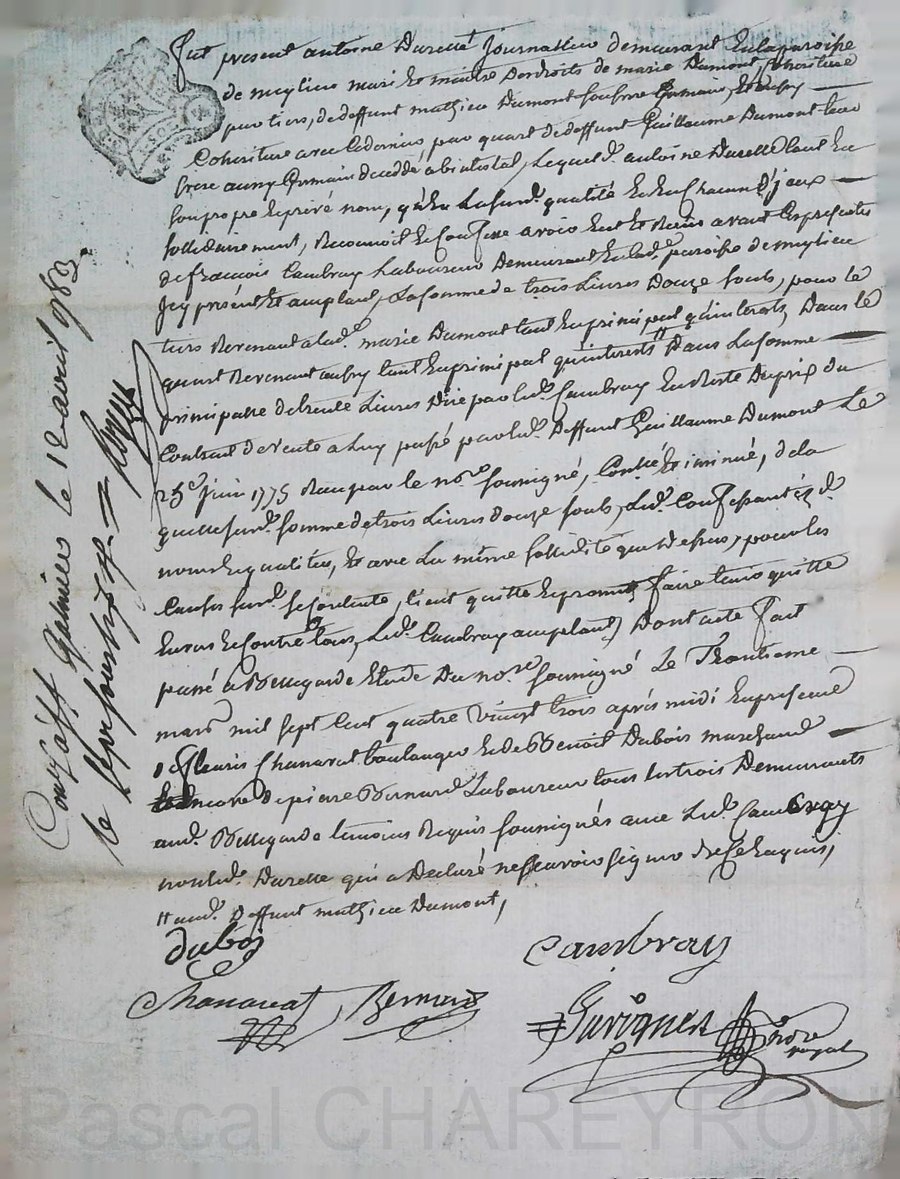 fut présent antoine Durette Journallier demeurant En la paroisse
de meylieu mari Et maitre Des droits de marie Dumont, cohéritiere
pour tiers, de deffunt mathieu Dumont son frere Germain, Et aussy
Cohéritiere avec Ce dernier, pour quart de deffunt Guillaume Dumont leur
frere aussy Germain décédé abintestat, Lequel d. antoine Durette tant En
son propre Et privé nom, qu'En La susd. qualité Et En Chacun D'jceux
sollidairement, Reconnoit Et Confesse avoir Eut Et Reçu avant Ces présentes
de françois Cambray Laboureur Demeurant En lad. paroisse de meylieu
Jcy présent Et acceptant, La somme de trois Livres Douze souls, pour le
tiers Revenant a lad. marie Dumont tant En principal qu'interets, Dans le
quart Revenant aussy tant En principal qu'interets # Dans La somme
principalle de trente Livres Düe par led. Cambray En Reste Du prix du
Contrat de vente a Luy passé par led. Deffunt Guillaume Dumont Le
25e Juin 1775 Reçu par le nore. soussigné, Contrôlé Et insinué, de la
quelle susd. somme de trois Livres douze souls, Led. Confessant Es d.
noms Et qualités, Et avec La même sollidité que Dessus, pour les
Causes susd. se contente, tient quitte Et promet faire tenir quitte
Envers Et Contre tous, Led. Cambray acceptant, Dont acte fait
passé a Bellegarde Etude Du nore. soussigné Le Trentieme
mars mil sept Cent quatre vingt trois après midi En présence
de fleuris Chanavat boulanger Et de Benoit Dubois marchand
Et Encore De pierre Bernard Laboureur tous les trois Demeurants
aud. Bellegarde temoins Requis soussignés avec Led. Cambray
non led. Durette qui a Déclaré ne sçavoir signer De Ce Enquis,
# aud. Deffunt mathieu Dumont,
dubois
Cambray
Chanavat Bernard
nore
royal
Con. a St Galmier le 12 avril 1783.